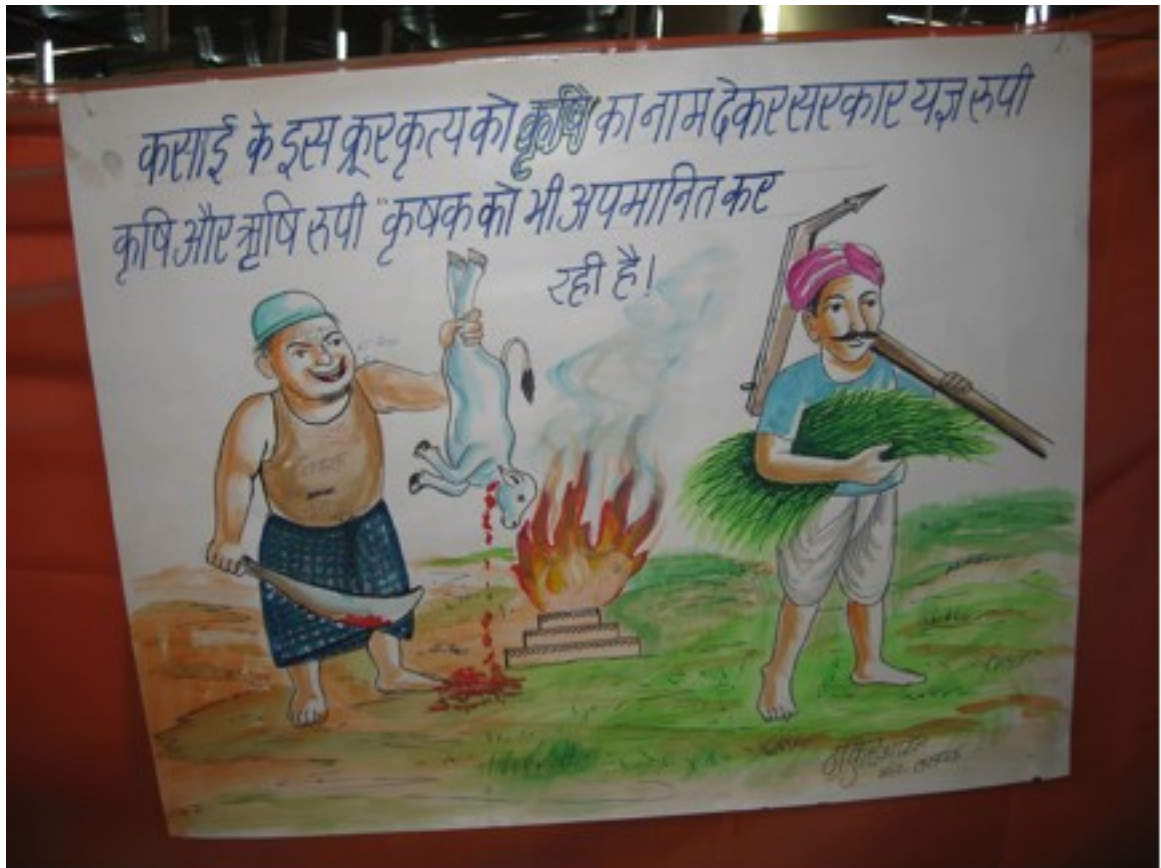 कसाई के इस क्रूर कृत्य को कृषि का नाम देकर सरकार यज्ञ रुपी
कृषि और ऋषि रुपी "कृषक को भी अपमानित कर
रही है!